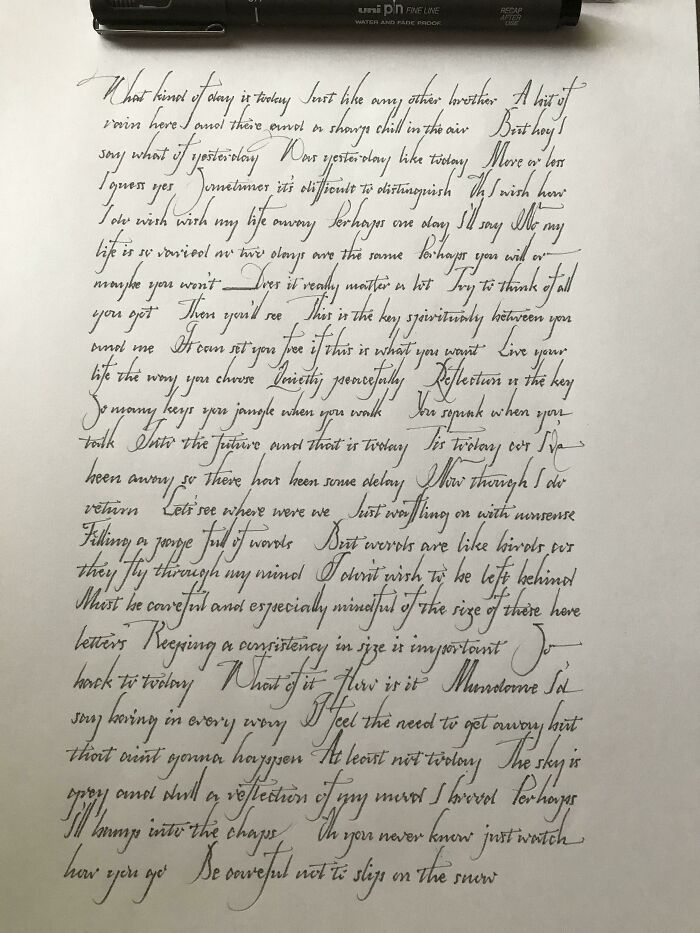 uni pin FINE LINE
WATER AND FADE PROOF
RECAP
AFTER
USE
What kind of day is today Just like any other brother A bit of
rain here and there and a sharp chill in the air But hey I
say what of yesterday Was yesterday like today More or less
I guess yes Sometimes it's difficult to distinguish Oh I wish how
I do wish wish my life away Perhaps one day I'll say No my
life is so varied no two days are the same Perhaps you will or
maybe you won't Does it really matter a lot Try to think of all
you got Then you'll see This is the key spiritualy between you
and me It can set you free if this is what you want Live your
life the way you choose Quietly peacefully Reflection is the key
So many keys you jangle when you walk You squak when you
talk Into the future and that is today Tis today cos I've
been away so there has been some delay Now though I do
return Lets see where were we Just waffling on with nonsense
Filling a page full of words But words are like birds cos
they fly through my mind I don't wish to be left behind
Must be careful and especially mindful of the size of these here
letters Keeping a consistency in size is important So
back to today What of it How is it Mundane I'd
say boring in every way I feel the need to get away but
that aint gonna happen At least not today The sky is
grey and dull a reflection of my mood I brood Perhaps
I'll bump into the chaps Oh you never know just watch
how you go Be careful not to slip on the snow